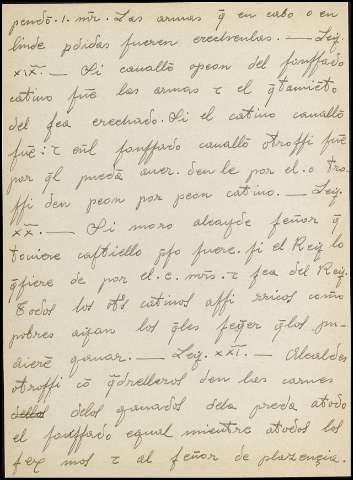 pendō .i. mr̄. Las armas q̄ en cabo o en
linde pdidas fueren erechenlas. — Ley.
xix̄. — Si cauallō opeon del fonssado
catiuo fuē las armas τ el q̄tamiēto
del sea erechado. Si el catiuo cauallō
fuē: τ enl fonssado cauallō otrossi fuē
por q̄l pueda auer. den le por el. o tro
ssi den peon por peon catiuo. — Ley.
xx̄. — Si moro alcayde señor q̄
touiere castiello pso fuere. si el Rey lo
q̄siere de por el .c. mrs̄. τ sea del Rey.
Todos los ots̄ catiuos assi rricos como
pobres ayan los q̄les q̄los pu-
dierē ganar. — Ley. xxī. — Alcaldes
otrossi cō q̄drelleros den las carnes
delos ganados dela preda atodo
el fonssado equal mientre atodos los
mos τ al señor de plazençia.